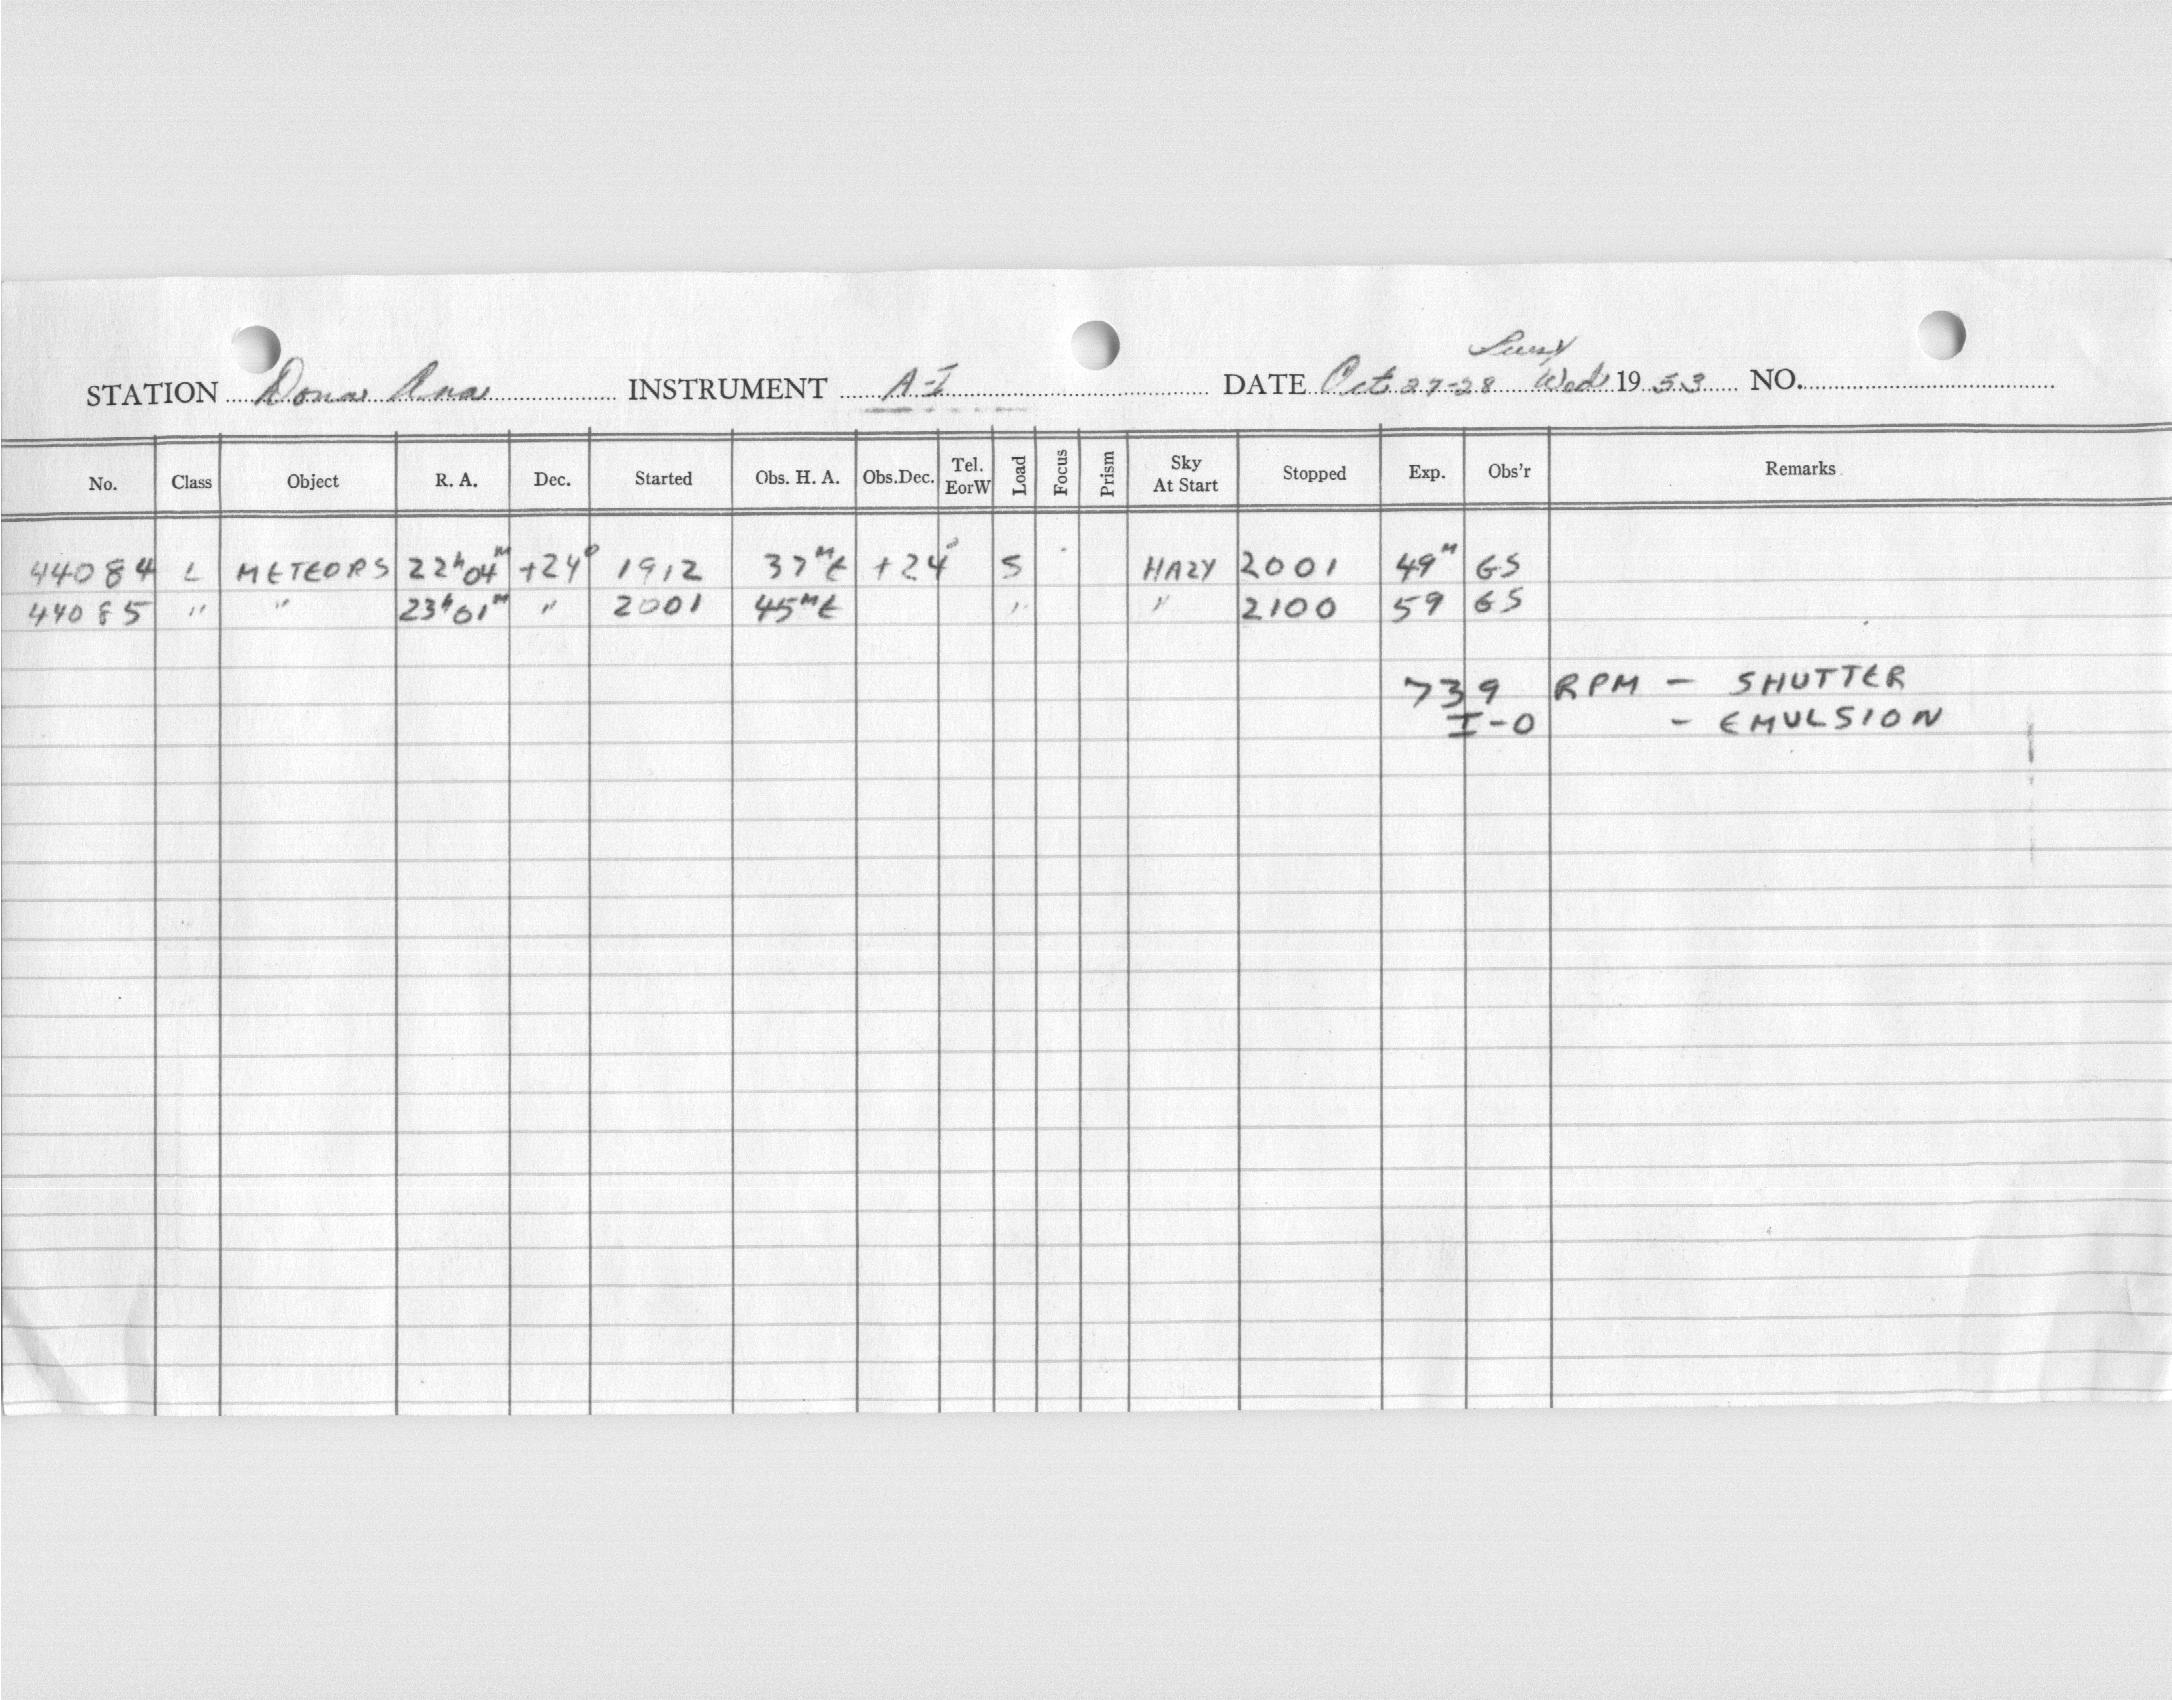 STATION Dona Ana INSTRUMENT A-I DATE Oct 27-28 Wed 1953 NO.
No. Class Object R. A. Dec. Started Obs. H. A. Obs.Dec. Tel. EorW Load Focus Prism Sky At Start Stopped Exp. Obs'r Remarks
44084 L METEORS 22h04M +24° 1912 37ME +24° S HAZY 2001 49M GS
44085 " " 23h01M " 2001 45ME " " 2100 59 GS
739 RPM - SHUTTER
I-O - EMULSION